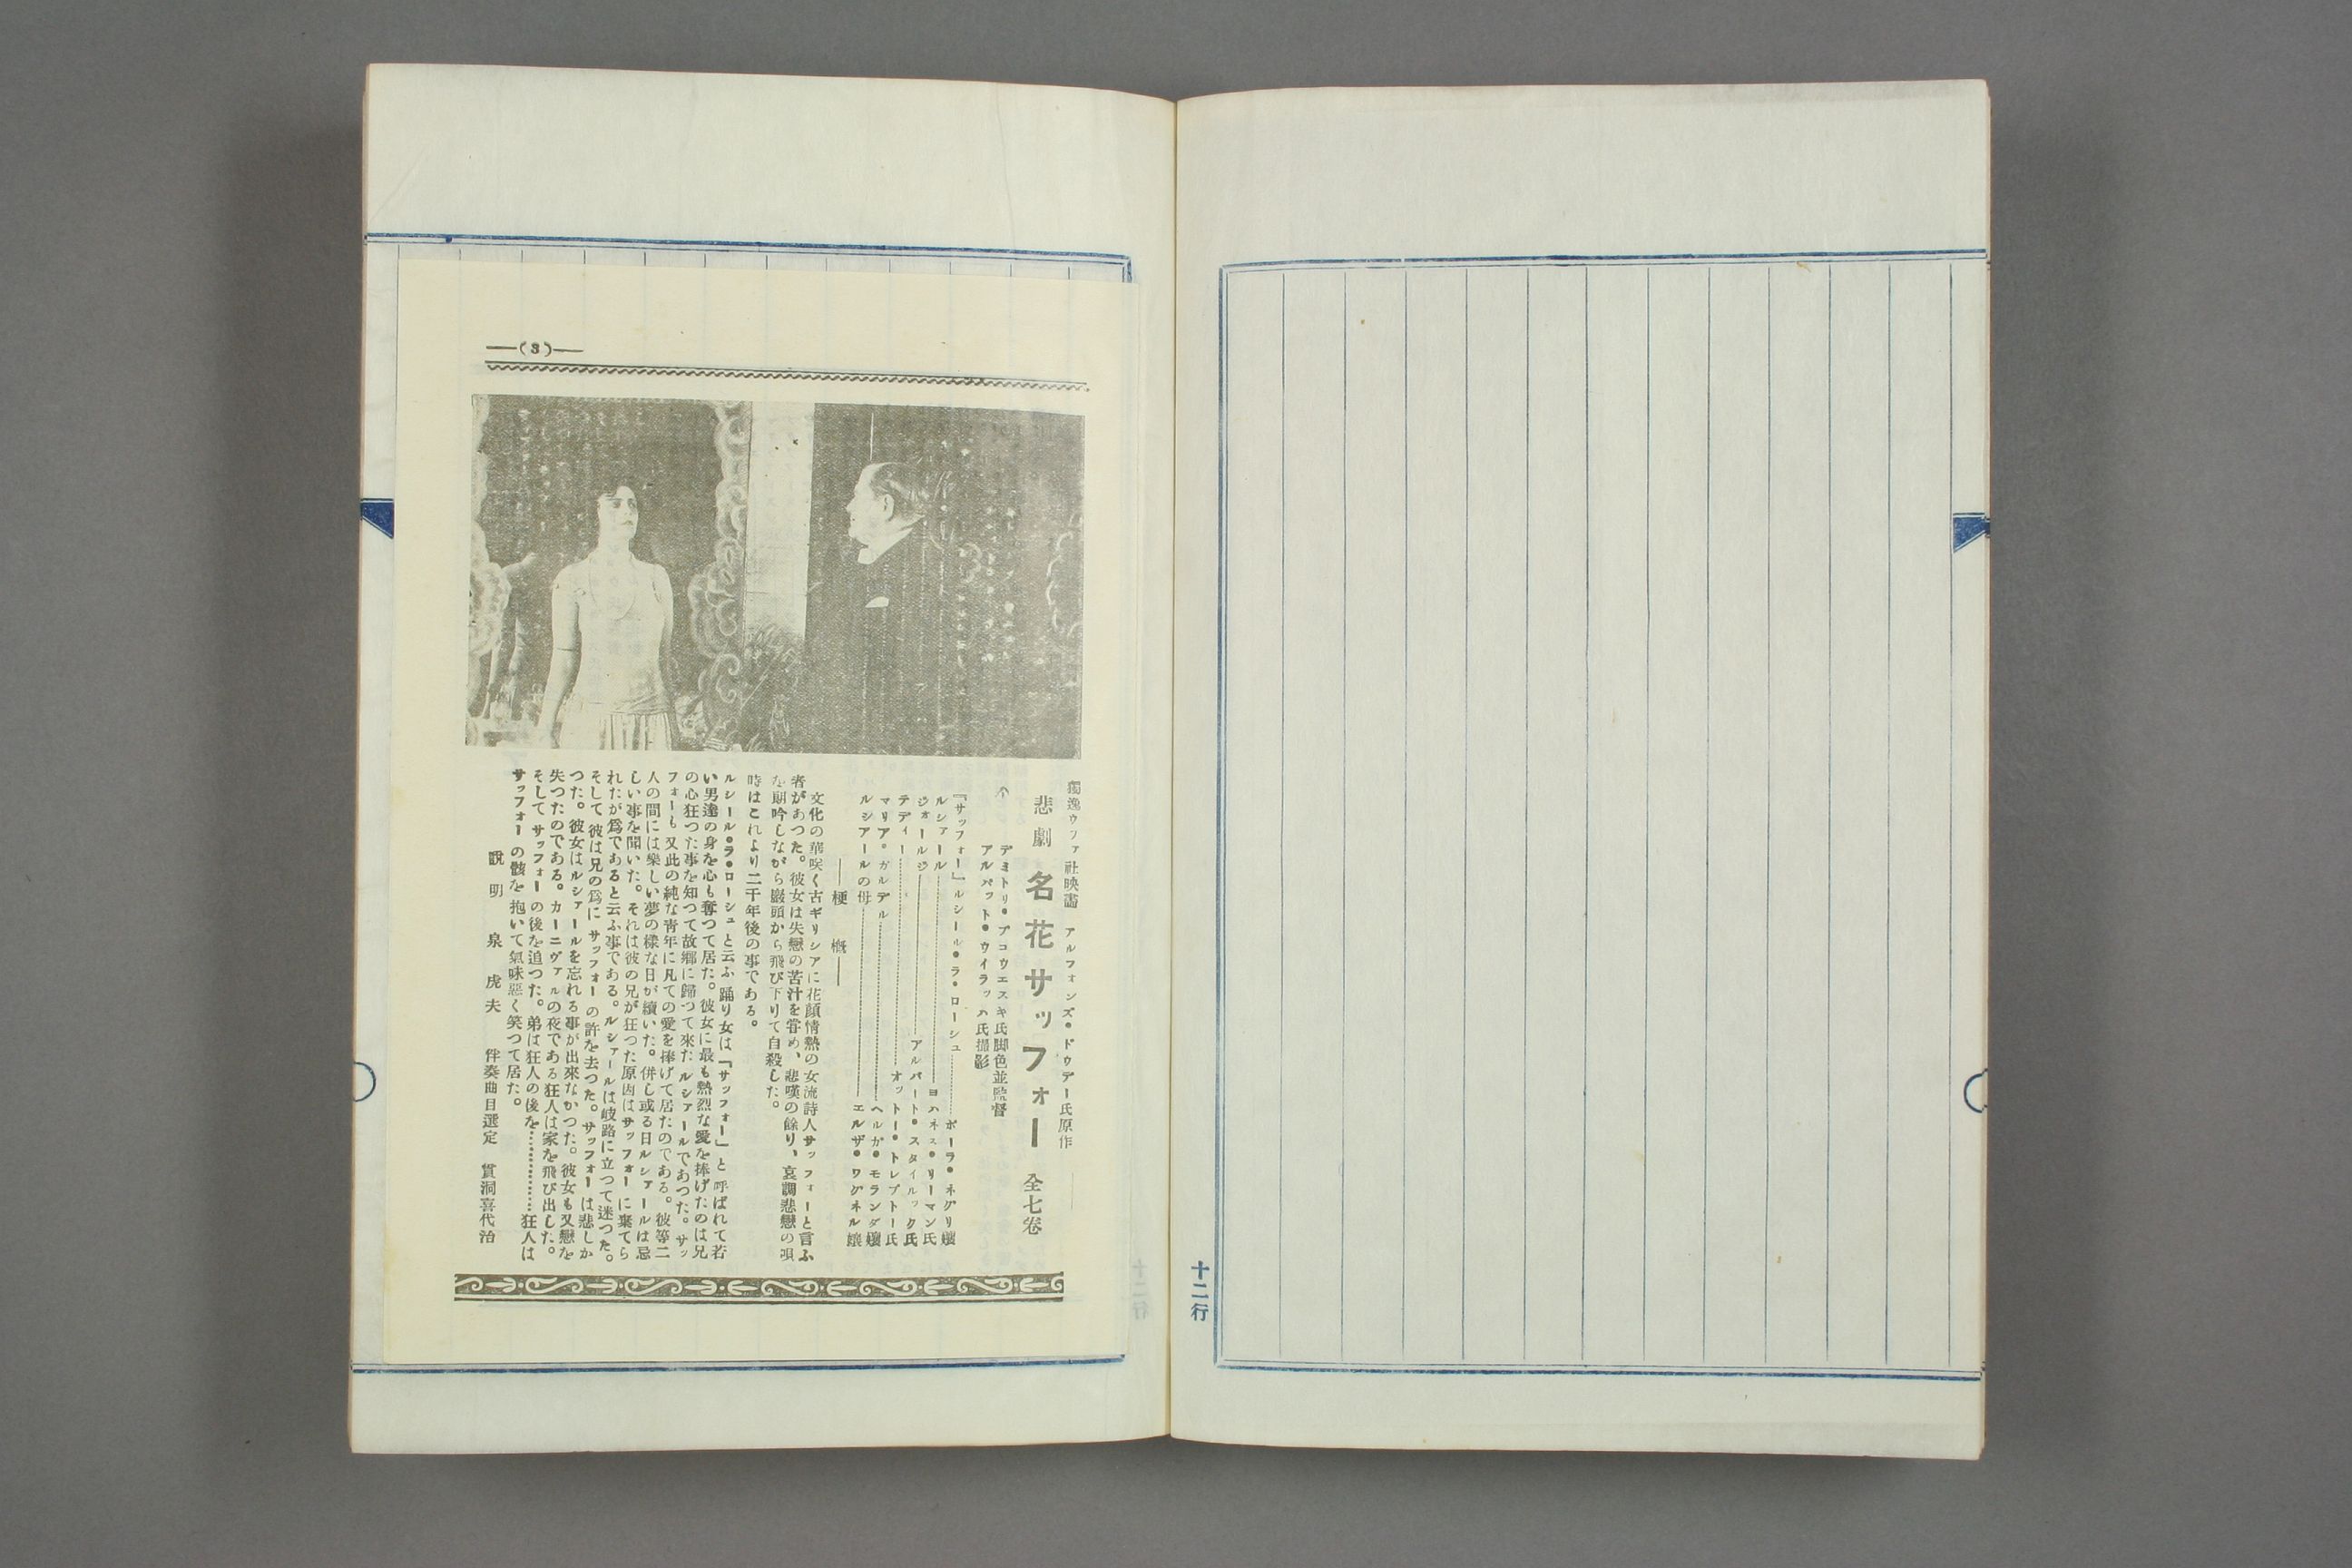 十二行
―(3)―
獨逸ウファ社映畵 アルフォンズ・ドウデー氏原作
悲劇 名花サッフォー 全七卷
デミトリ・ブコウエスキ氏脚色並監督
アルバット・ウイラッハ氏撮影
『サッフォー』ルシール・ラ・ローシュ……ポーラ・ネグリ孃
ルシァール……ヨハネス・リーマン氏
ジォールジ……アルバート・スタイルック氏
テディー……オットー・トレプトー氏
マリア・ガルデル……ヘルガ・モランダ孃
ルシアールの母……エルザ・ワグネル孃
――梗概――
文化の華咲く古ギリシアに花顔情熱の女流詩人サッフォーと言ふ
者があつた。彼女は失戀の苦汁を甞め、悲嘆の餘り、哀調悲戀の唄
な朗吟しながら巖頭から飛び下りて自殺した。
時はこれより二千年後の事である。
ルシール・ラ・ローシュと云ふ踊り女は『サッフォー』と呼ばれて若
い男達の身を心も奪つて居た。彼女に最も熱烈な愛を捧げたのは兄
の心狂つた事を知つて故鄕に歸つて來たルシァールであつた。サッ
フォーも又此の純な靑年に凡ての愛を捧げて居たのである。彼等二
人の間には樂しい夢の樣な日が續いた。併し或る日ルシァールは忌
しい事を聞いた。それは彼の兄が狂つた原因はサッフォーに棄てら
れたが爲であると云ふ事である。ルシァールは岐路に立つて迷つた。
そして彼は兄の爲にサッフォーの許を去つた。サッフォーは悲しか
つた。彼女はルシァールを忘れる事が出來なかつた。彼女も又戀を
失つたのである。カーニヴァルの夜である狂人は家を飛び出した。
そしてサッフォーの後を追つた。弟は狂人の後を……………狂人は
サッフォーの骸を抱いて氣味惡く笑つて居た。
說明 泉虎夫 伴奏曲目選定 貫洞喜代治